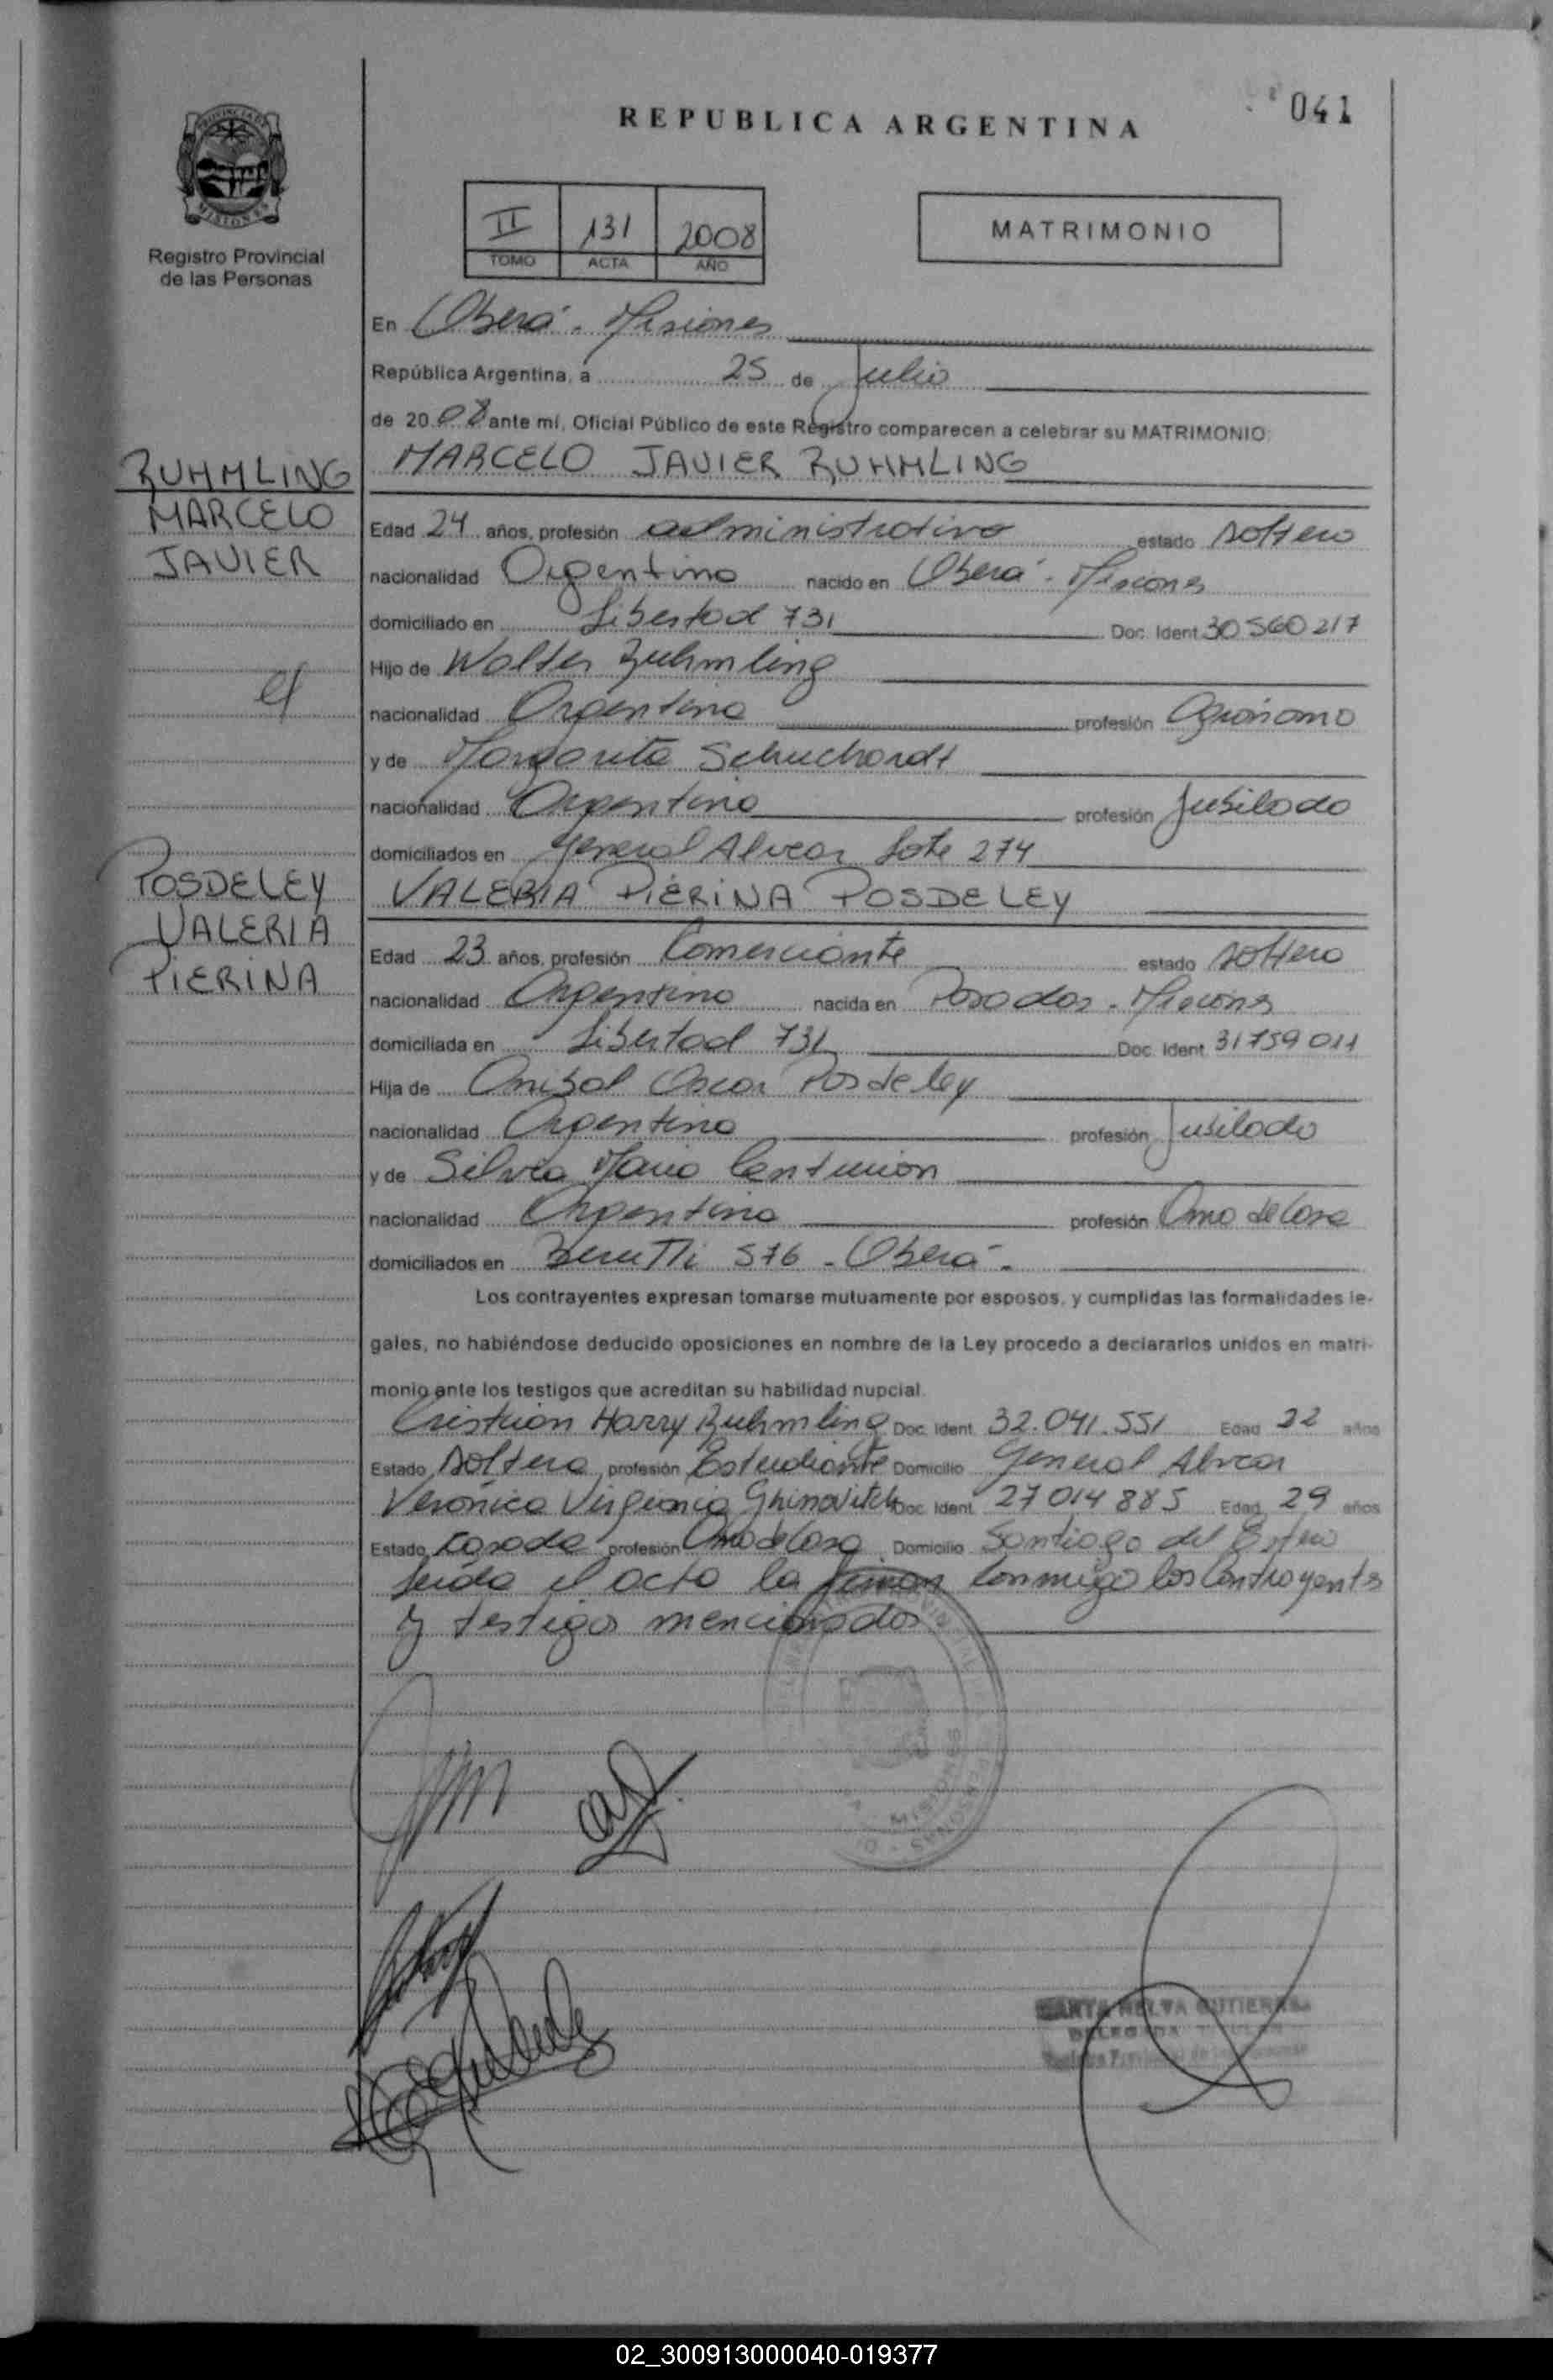 041
REPUBLICA ARGENTINA
PROVINCIA DE
MISIONES
Registro Provincial
de las Personas
II 131 2008
TOMO ACTA AÑO
MATRIMONIO
En Oberá - Misiones
República Argentina, a 25 de Julio
de 2008 ante mí, Oficial Público de este Registro comparecen a celebrar su MATRIMONIO:
ZUHMLING
MARCELO
JAVIER
MARCELO JAVIER ZUHMLING
Edad 24 años, profesión administrativo estado soltero
nacionalidad Argentina nacido en Oberá - Misiones
domiciliado en Libertad 731 Doc. Ident. 30560217
Hijo de Walter Zuhmling
nacionalidad Argentina profesión Agrónomo
y de Margarita Schuchardt
nacionalidad Argentina profesión Jubilada
domiciliados en General Alvear Lote 274
POSDELEY
VALERIA
PIERINA
VALERIA PIERINA POSDELEY
Edad 23 años, profesión Comerciante estado soltera
nacionalidad Argentina nacida en Posadas - Misiones
domiciliada en Libertad 731 Doc. Ident. 31759011
Hija de Anibal Oscar Posdeley
nacionalidad Argentina profesión Jubilado
y de Silvia Maria Centurion
nacionalidad Argentina profesión Ama de Casa
domiciliados en Berutti 576 - Oberá -
Los contrayentes expresan tomarse mutuamente por esposos, y cumplidas las formalidades le-
gales, no habiéndose deducido oposiciones en nombre de la Ley procedo a declararlos unidos en matri-
monio ante los testigos que acreditan su habilidad nupcial.
Cristian Harry Zuhmling Doc. Ident. 32.041.551 Edad 22 años
Estado soltero profesión Estudiante Domicilio General Alvear
Verónica Virginia Ghinovitch Doc. Ident. 27014885 Edad 29 años
Estado Casada profesión Ama de Casa Domicilio Santiago del Estero
Leida el acta la firman conmigo los Contrayentes
y testigos mencionados
MISIONES
PERSONAS
MARTA NELVA GUTIERREZ
DELEGADA TITULAR
02_300913000040-019377